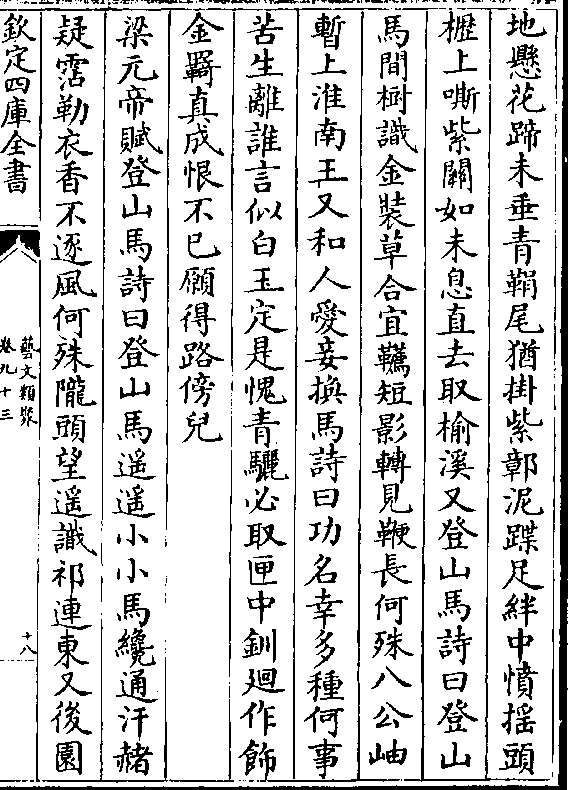 地懸花蹄未垂青鞘尾猶掛紫鄣泥蹀足絆中憤揺頭
櫪上嘶紫關如未息直去取榆溪又登山馬詩曰登山
馬間樹識金裝草合宜韉短影轉見鞭長何殊八公岫
暫上淮南王又和人愛妾換馬詩曰功名幸多種何事
苦生離誰言似白玉定是愧青驪必取匣中釧廻作飾
金羇真成恨不已願得路傍兒
梁元帝賦登山馬詩曰登山馬遥遥小小馬纔通汗赭
疑霑勒衣香不逐風何殊隴頭望遥識祁連東又後園
欽定四庫全書
藝文類聚
卷九十三
十八